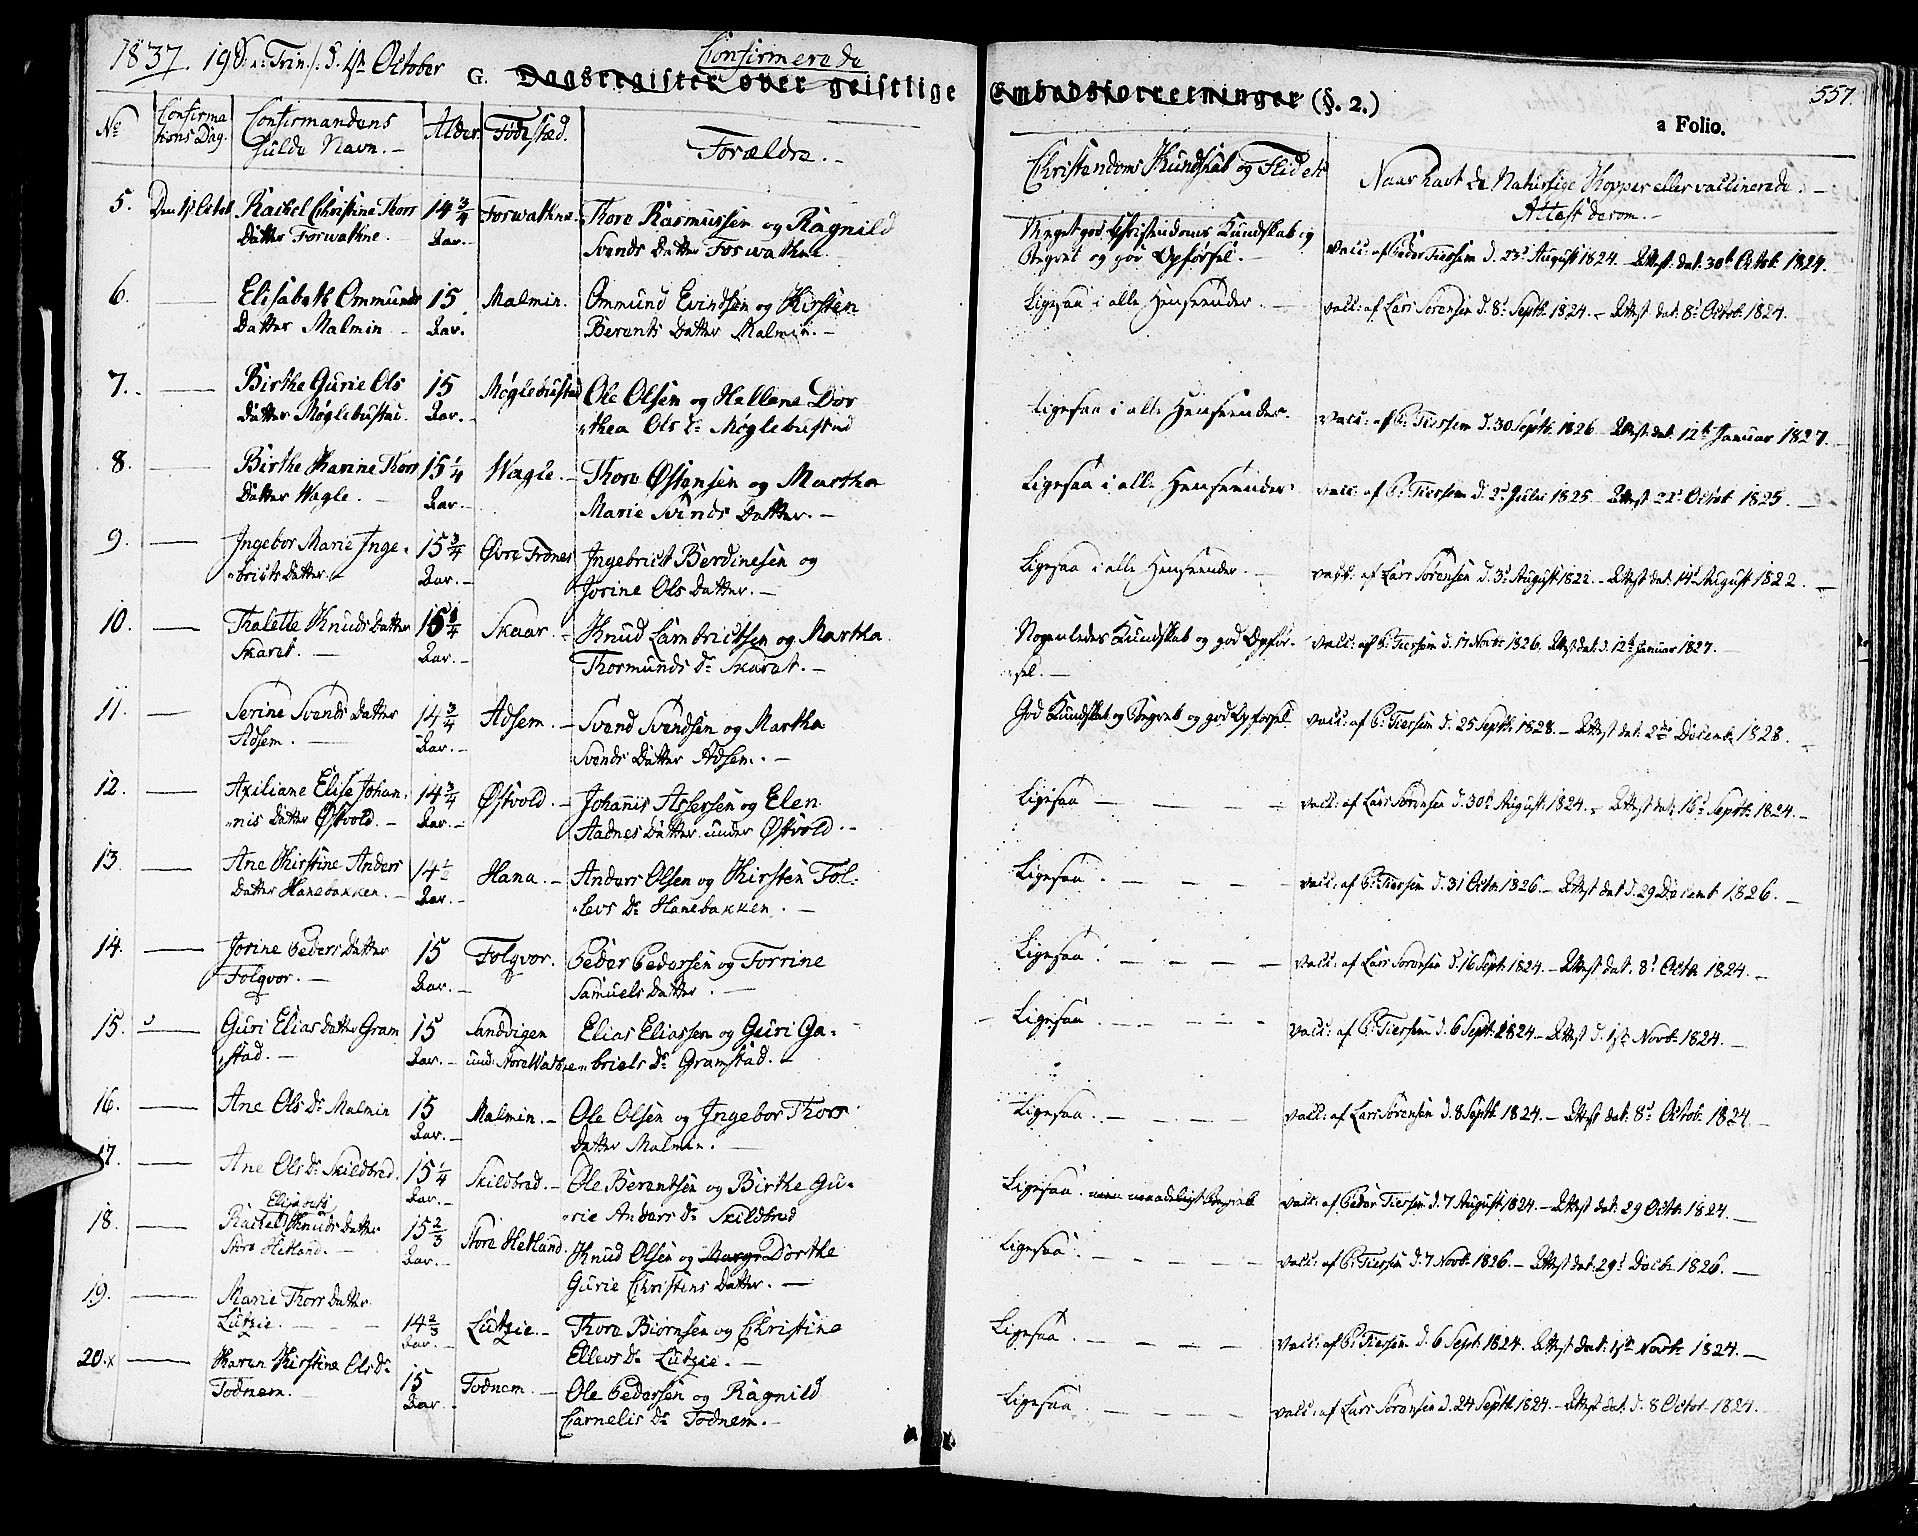 1837. 19 S. e. Trin. d. 1ste October
Confirmerede
G. Dagsregister over geistlige Embedsforretninger (§. 2.)
557.
a Folio.
No
Confirma
tions Dag.
Confirmandens
fulde Navn. -
Alder.
Fødested.
Forældre. -
Christendoms Kundskab og Flid etc
Naar havt de Naturlige Kopper eller vaccinerede. -
Attest derom. -
5. Den 1ste Octob. Rachel Christine Thors 14 3/4 Forwathne. Thore Rasmussen og Ragnild
Datter Forwathne. Aar. - Svends Datter Forwathne.
Meget god Christendoms Kundskab og
Begreb og god Opførsel. -
vacc: af Peder Tiersem d. 23d August 1824. - Attest dat. 30t Octob. 1824.
6. Elisabeth Ommunds 15 Malmin. Ommund Evindsen og Kirsten
Datter Malmin Aar. Berents Datter Malmin. -
Ligesaa i alle Henseender. - vacc: af Lars Sørensen d. 8d Septb. 1824. - Attest dat. 8d Octob. 1824.
7. Birthe Gurie Ols 15 Møglebustad Ole Olsen og Hellene Dor
Datter Møglebustad. Aar. - thea Ols Dr Møglebustad
Ligesaa i alle Henseender. vacc: af P. Tiersem d. 30 Septb. 1826 - Attest dat. 12te Januar 1827.
8. Birthe Karine Thors 15 1/4 Wagle. - Thore Østensen og Martha
Datter Wagle. - Aar. - Marie Svends Datter. -
Ligesaa i alle Henseender. vacc: af P. Tiersem d. 2d Julei 1825 - Attest 22d Octob. 1825. -
9. Ingebor Marie Inge- 15 3/4 Øvre Frönes Ingebrict Berdinesen og
bricts Datter. - Aar. - Jorine Ols Datter. -
Ligesaa i alle Henseender. - vacc: af Lars Sørensen d. 3d August 1822. - Attest dat. 14d August 1822. -
10. Thalette Knuds Datter 15 1/4 Skaar. - Knud Lambrictsen og Martha
Skaret. - Aar. - Thormunds Dr Skaret. -
Nogenledes Kundskab og god Opfør-
sel. -
vacc: af P. Tiersem d. 17 Novb. 1826. Attest dat. d. 12te Januar 1827. -
11. Serine Svends Datter 14 3/4 Adsem. - Svend Svendsen og Martha
Adsem. - Aar. - Svends Datter Adsem. -
God Kundskab og Begreb og god Opførsel vacc: af P. Tiersem d. 25 Septb. 1828. - Attest dat. 2den Decemb. 1828.
12. Axiliane Elise Johan- 14 3/4 Østvold. - Johanis Assersen og Elen
nis Datter Østvold. - Aar. - Aadnes Datter under Østvold. -
Ligesaa - - - - vacc: af Lars Sørensen d. 30t August 1824. - Attest dat. 16d Septb. 1824. -
13. Ane Kirstine Anders 14 1/2 Hana. - Anders Olsen og Kirsten Tol-
Datter Hanebakken. - Aar. - levs Dr Hanebakken. -
Ligesaa. - - - - vacc: af P. Tiersem d. 31 Octb. 1826. - Attest dat. d. 29 Decemb. 1826. -
14. Jorine Peders Datter 15 Folqvor. Peder Pedersen og Torrine
Folqvor. - Aar. - Samuels Datter. -
Ligesaa. - - - - vacc: af Lars Sørensen d. 16 Sept. 1824. - Attest dat. 8d Octb. 1824. -
15. Guri Elias Datter Gram 15 Sandvigen Elias Eliassen og Guri Ga-
stad. - Aar. - und. Store Wathne briels Dr Gramstad. -
Ligesaa. - - - - vacc: af P. Tiersem d. 6 Sept. 1824. - Attest d. 1ste Novb. 1824. -
16. Ane Ols Dr Malmin 15 Malmin. - Ole Olsen og Ingebor Thors
Aar. - Datter Malmin. -
Ligesaa. - - - - vacc: af Lars Sørensen d. 8 Septb. 1824. - Attest dat. 8d Octob. 1824. -
17. Ane Ols Dr Skildbred. 15 1/4 Skildbred. - Ole Berentsen og Birthe Gu-
Aar. - rie Anders Dr Skildbred
Ligesaa. men maadeligt Begreb vacc: af Peder Tiersem d. 7 August 1824. - Attest dat. 29 Octb. 1824. -
18. Elisabeth
Rachel Knuds Datter 15 2/3 Store Hetland. Knud Olsen og Marg. Dorthe
Store Hetland. - Aar. - Gurie Christens Datter. -
Ligesaa. - - - - vacc: af P. Tiersem d. 7 Novb. 1826. - Attest dat. 29d Decb. 1826. -
19. Marie Thors Datter
Lutzie. - 14 2/3 Lutzie. - Thore Biørnsen og Christine
Aar. - Ellevs Dr Lutzie. -
Ligesaa. - - - - vacc: af P. Tiersem d. 6 Sept. 1824. Attest dat. 1ste Novb. 1824. -
20. x Karen Kirstine Ols Dr 15 Todnem. - Ole Pedersen og Ragnild
Todnem. - Aar. - Carnelis Dr Todnem. -
Ligesaa. - - - - vacc: af Lars Sørensen d. 24 Septb. 1824. - Attest dat. d. 8 Octob. 1824. -